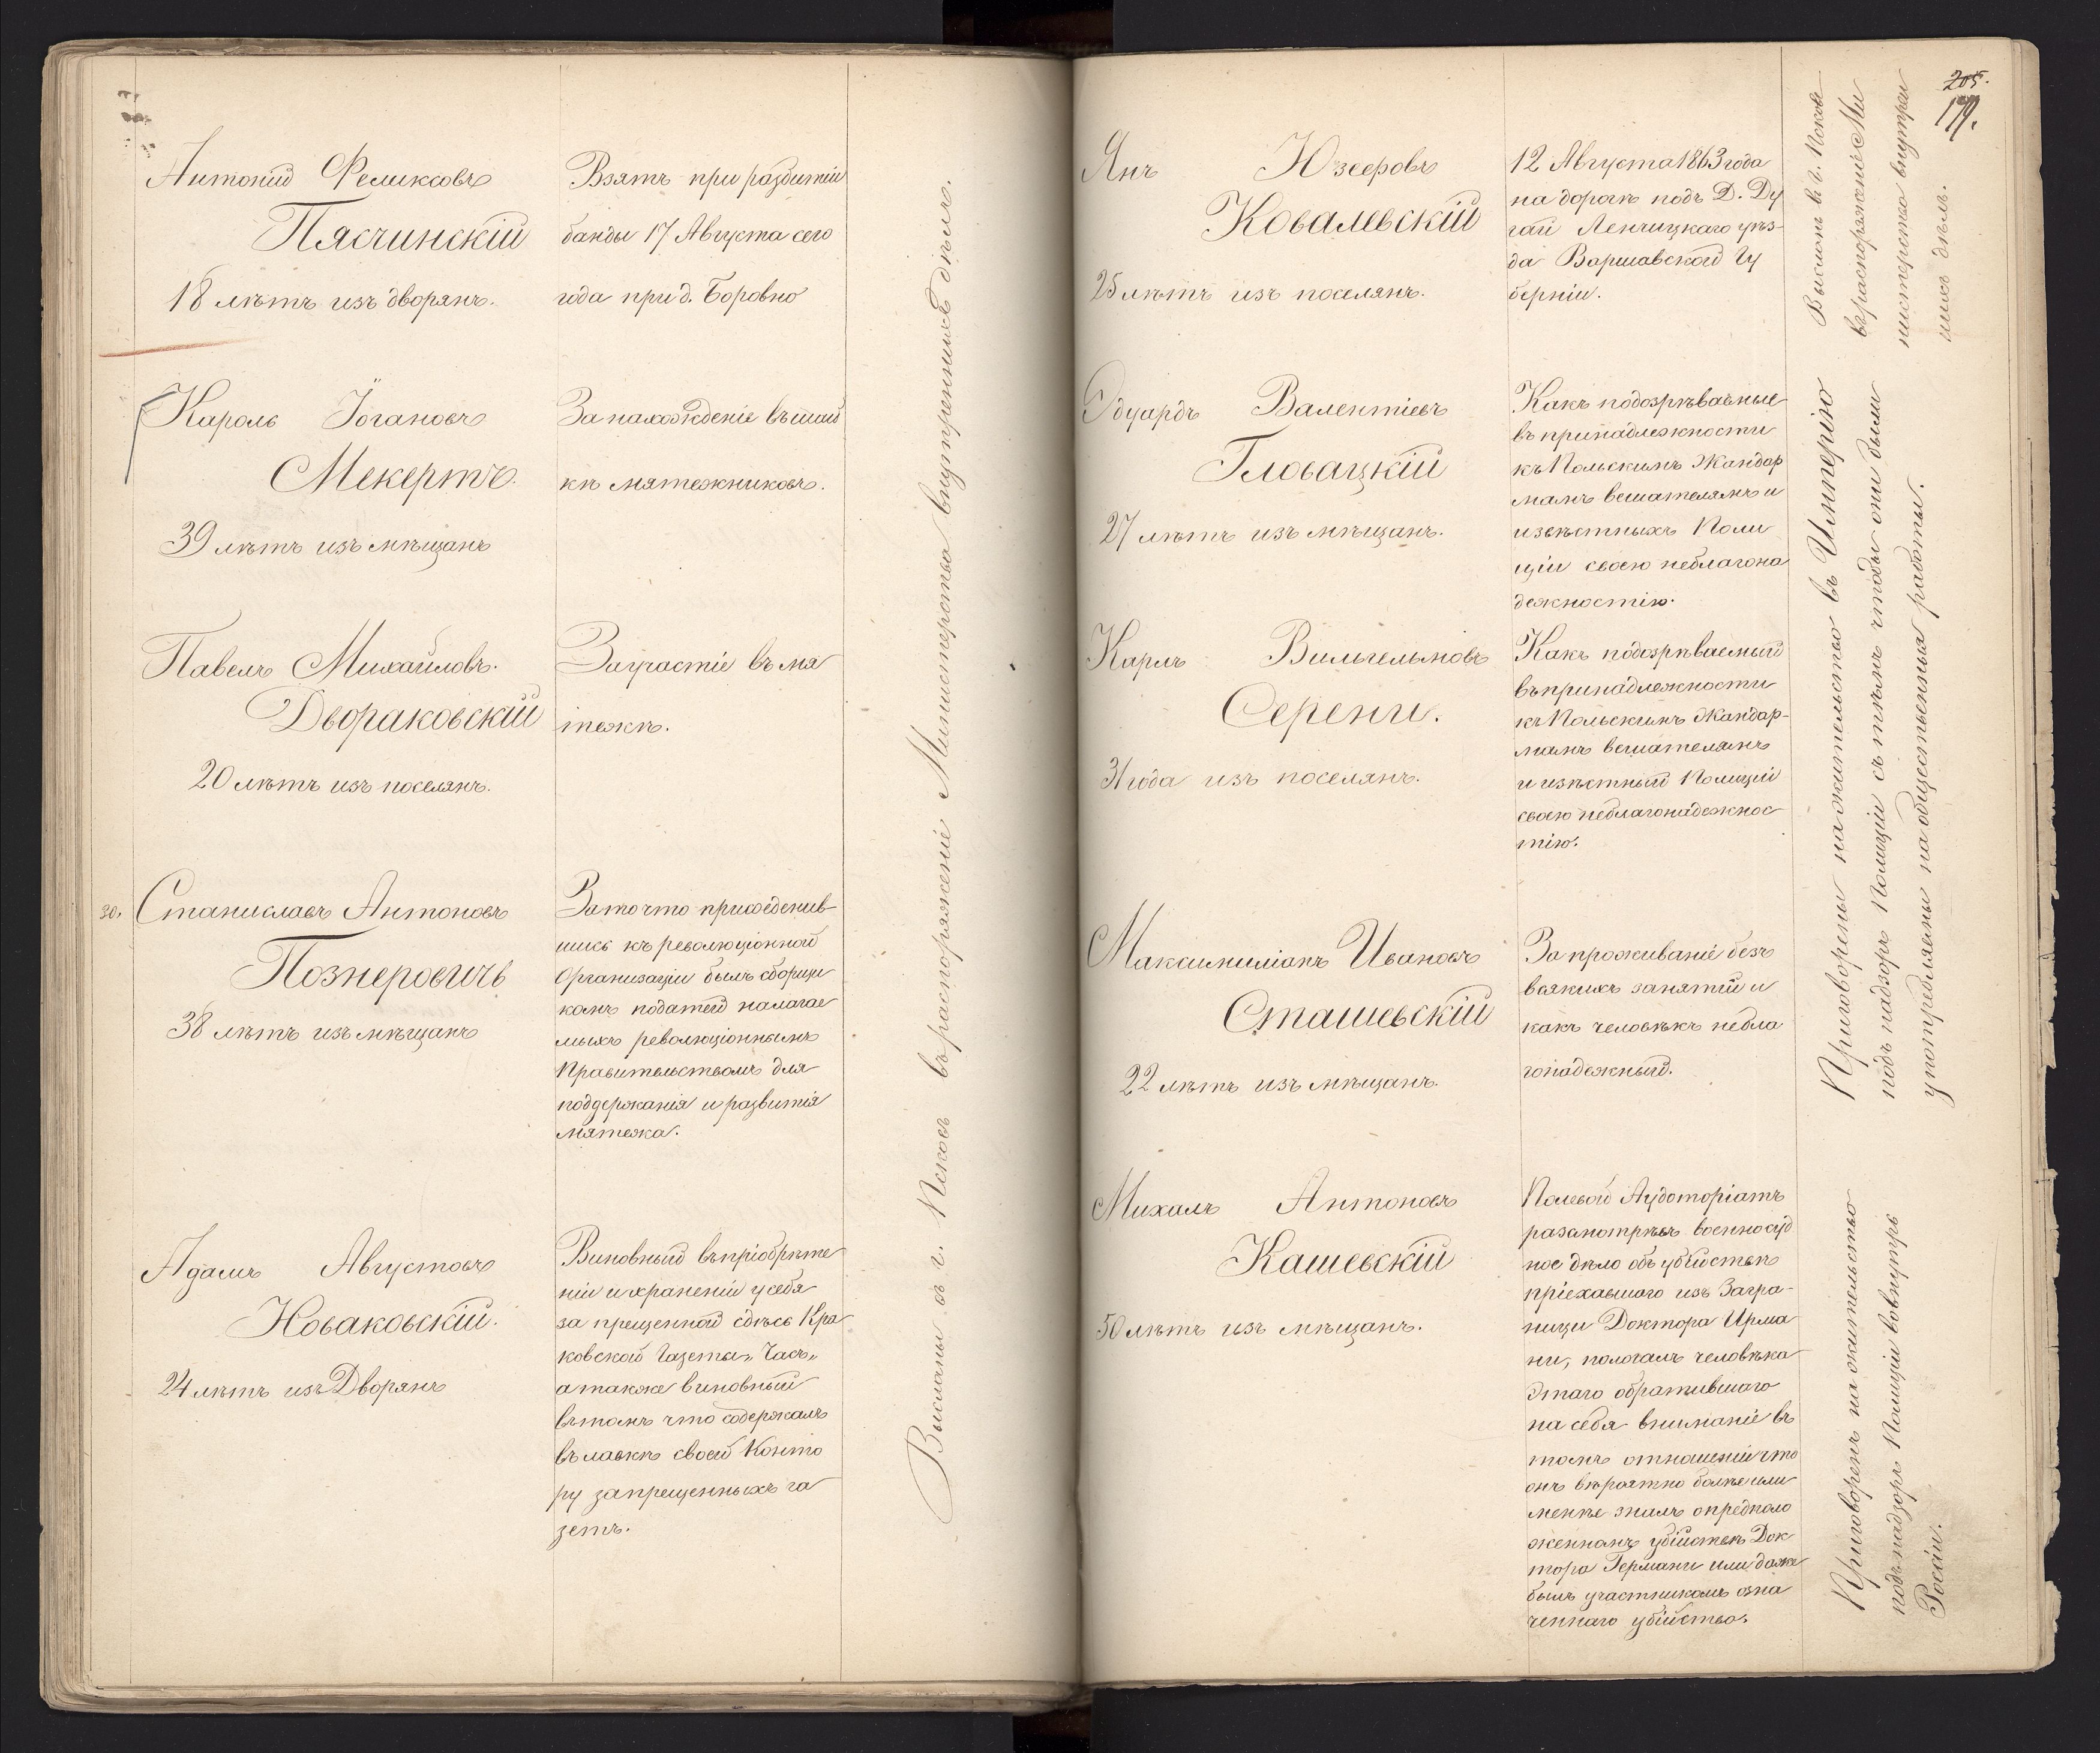 Антоній Феликсовъ
Пясчинскій
18 лѣтъ изъ дворянъ.
Взятъ при разбитіи
банды 17 Августа сего
года при д. Боровно
Кароль Іогановъ
Мекертъ.
39 лѣтъ изъ мѣщанъ
За нахожденіе въ шай
кѣ мятежниковъ.
Павелъ Михайловъ.
Двораковскій
20 лѣтъ изъ поселянъ.
За участіе въ мя
тежѣ.
30. Станиславъ Антоновъ
Познеровичъ
38 лѣтъ изъ мѣщанъ
За то что присоединив
шись къ революціонной
Организаціи былъ сборщи
комъ податей налагае
мыхъ революціоннымъ
Правительствомъ для
поддержанія и развитія
мятежа.
Адамъ Августовъ
Новаковскій.
24 лѣтъ изъ Дворянъ
Виновный въ пріобрѣте
ніи и храненіи у себя
за прещенной сдѣсь Кра
ковской Газеты „Часъ„
а также виновный
въ томъ что содержалъ
въ лавкѣ своей Конто
ру запрещенныхъ га
зетъ.
Высланы въ г. Псковъ въ распоряженіе Министерства внутреннихъ дѣлъ.
205.
179.
Янъ Юзефовъ
Ковалевскій
25 лѣтъ изъ поселянъ.
12 Августа 1863 года
на дорогѣ подъ Д. Ду
гай Ленчицкаго уѣз-
да Варшавской Гу
берніи.
Высланъ въ г. Псковъ
въ распоряженіе Ми
нистерства внутрен
нихъ дѣлъ.
Эдуардъ Валентіевъ
Гловацкій
27 лѣтъ изъ мѣщанъ.
Какъ подозрѣваемые
въ принадлежности
къ Польскимъ Жандар
мамъ вешателямъ и
извѣстныхъ Поли
ціи своею неблагона
дежностію.
Карлъ Вильгельмовъ
Серени.
31 года изъ поселянъ.
Какъ подозрѣваемый
въ принадлежности
къ Польскимъ Жандар-
мамъ вешателямъ
и извѣстный Полиціи
своею неблагонадежнос
тію.
Максимиліанъ Ивановъ
Сташевскій
22 лѣтъ изъ мѣщанъ.
За проживаніе безъ
всякихъ занятій и
какъ человѣкъ небла
гонадежный.
Приговорены на жительство въ Имперію
подъ надзоръ Полиціи съ тѣмъ чтобы они были
употребляемы на общественныя работы.
Михалъ Антоновъ
Кашевскій
50 лѣтъ изъ мѣщанъ.
Полевой Аудоторіатъ
разсмотрѣвъ военно суд
ное дѣло объ убійствѣ
пріехавшаго изъ Загра-
ницы Доктора Ирма
ни, пологалъ человѣка
этаго обратившаго
на себя вниманіе въ
томъ отношеніи что
онъ вѣроятно болѣе или
менѣе зналъ о предполо
женномъ убійствѣ Док
тора Германи или даже
былъ участникомъ озна
ченнаго убійства.
Приговоренъ на жительство
подъ надзоръ Полиціи вовнутрь
Росіи.